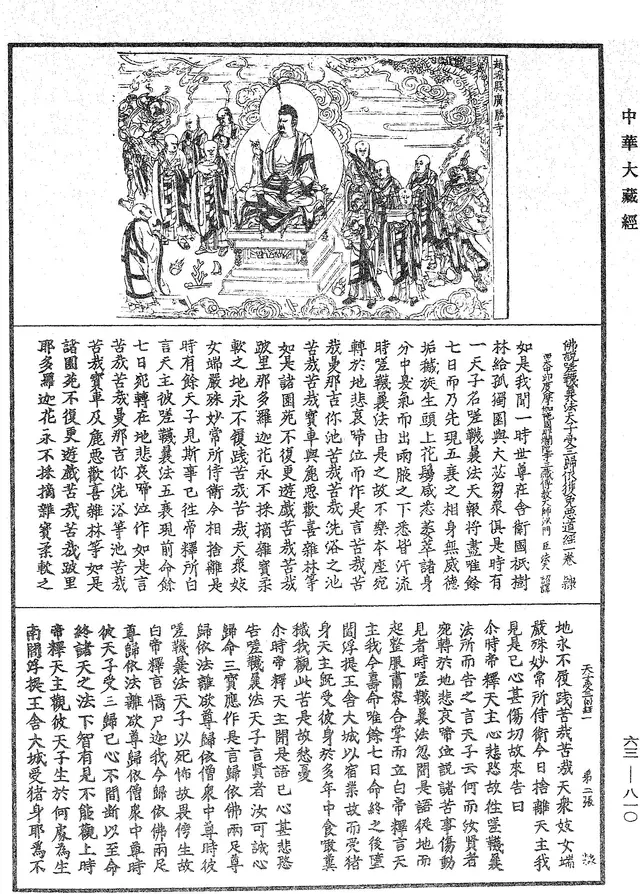 中華大藏經
趙城縣廣勝寺
佛說嗟韈曩法天子受三歸依獲免惡道經一卷 隸
如是我聞一時世尊在舍衛國祇樹
林給孤獨園與大苾芻衆俱是時有
一天子名嗟韈曩法天報將盡唯餘
七日而乃先現五衰之相身無威德
垢穢旋生頭上花鬘咸悉萎萃諸身
分中臭氣而出兩腋之下悉皆汗流
時嗟韈曩法由是之故不樂本座宛
轉於地悲哀啼泣而作是言苦哉苦
哉曼那吉你池苦哉苦哉洗浴之池
苦哉苦哉寶車與麁惡歡喜雜林等
如是諸園苑不復更遊戲苦哉苦哉
跛里耶多羅迦花永不採摘雜寶柔
軟之地永不復踐苦哉苦哉天衆婇
女端嚴殊妙常所侍衛今相捨離是
時有餘天子見斯事已往帝釋所白
言天主彼嗟韈曩法五衰現前命餘
七日宛轉在地悲哀啼泣作如是言
苦哉苦哉曼那吉你洗浴等池苦哉
苦哉寶車及麁惡歡喜雜林等如是
諸園苑不復更遊戲苦哉苦哉跛里
耶多羅迦花永不採摘雜寶柔軟之
第二張 隸
地永不復踐苦哉苦哉天衆婇女端
嚴殊妙常所侍衛今日捨離天主我
見是已心甚傷切故來告曰
尒時帝釋天主心悲愍故往嗟韈曩
法所而告之言天子云何而汝賢者
宛轉於地悲哀啼泣說諸苦事傷動
見者時嗟韈曩法忽聞是語從地而
起整服肅容合掌而立白帝釋言天
主我今壽命唯餘七日命終之後墮
閻浮提王舍大城以宿業故而受猪
身天主既受彼身於多年中食噉糞
穢我觀此苦是故愁憂
尒時帝釋天主聞是語已心甚悲愍
告嗟韈曩法天子言賢者汝可誠心
歸命三寶應作是言歸依佛兩足尊
歸依法離欲尊歸依僧衆中尊時彼
嗟韈曩法天子以死怖故畏傍生故
白帝釋言憍尸迦我今歸依佛兩足
尊歸依法離欲尊歸依僧衆中尊時
彼天子受三歸已心不間斷以至命
終諸天之法下智有見不能觀上時
帝釋天主觀彼天子生於何處為生
南閻浮提王舍大城受猪身耶為不
六三—八一〇